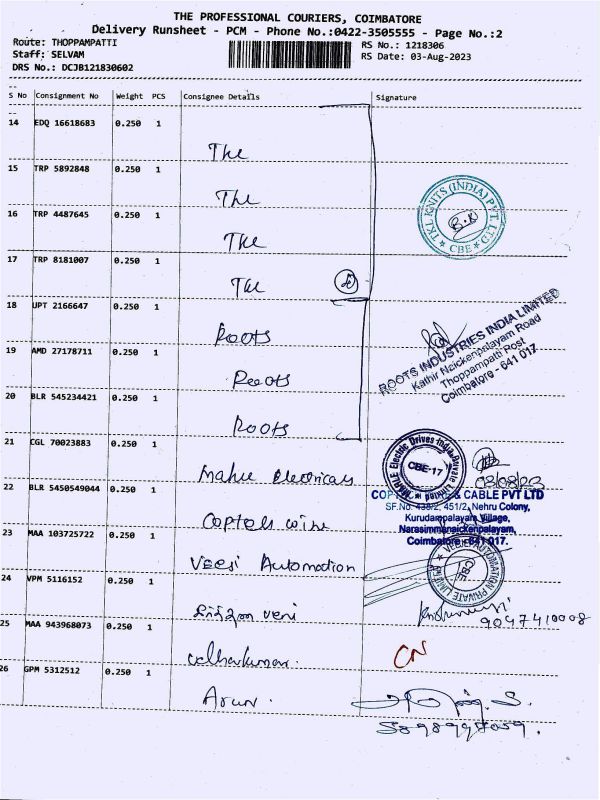 THE PROFESSIONAL COURIERS, COIMBATORE
Delivery Runsheet - PCM - Phone No.:0422-3505555 - Page No.:2
Route: THOPPAMPATTI
Staff: SELVAM
DRS No.: DCJB121830602
RS No.: 1218306
RS Date: 03-Aug-2023
S No Consignment No Weight PCS Consignee Details Signature
14 EDQ 16618683 0.250 1
The
15 TRP 5892848 0.250 1
The
16 TRP 4487645 0.250 1
The
TKL KNITS (INDIA) PVT. LTD
B.K
CBE
17 TRP 8181007 0.250 1
The
18 UPT 2166647 0.250 1
Roots
ROOTS INDUSTRIES INDIA LIMITED
Kathir Naickenpalayam Road
Thoppampatti Post
Coimbatore - 641 017
19 AMD 27178711 0.250 1
Roots
20 BLR 545234421 0.250 1
Roots
21 CGL 70023883 0.250 1
Mahle Electricals
MAHLE Electric Drives India Private Limited
CBE-17
03/08/23
22 BLR 5450549044 0.250 1
Coptels wire
& CABLE PVT LTD
SF.No. 438/2, 451/2, Nehru Colony,
Kurudampalayam Village,
Narasimmanaickenpalayam,
Coimbatore - 641 017.
23 MAA 103725722 0.250 1
Veesi Automation
AUTOMATION PRIVATE LIMITED
CBE
24 VPM 5116152 0.250 1
9047410008
25 MAA 943968073 0.250 1
CN
26 GPM 5312512 0.250 1
Arun.